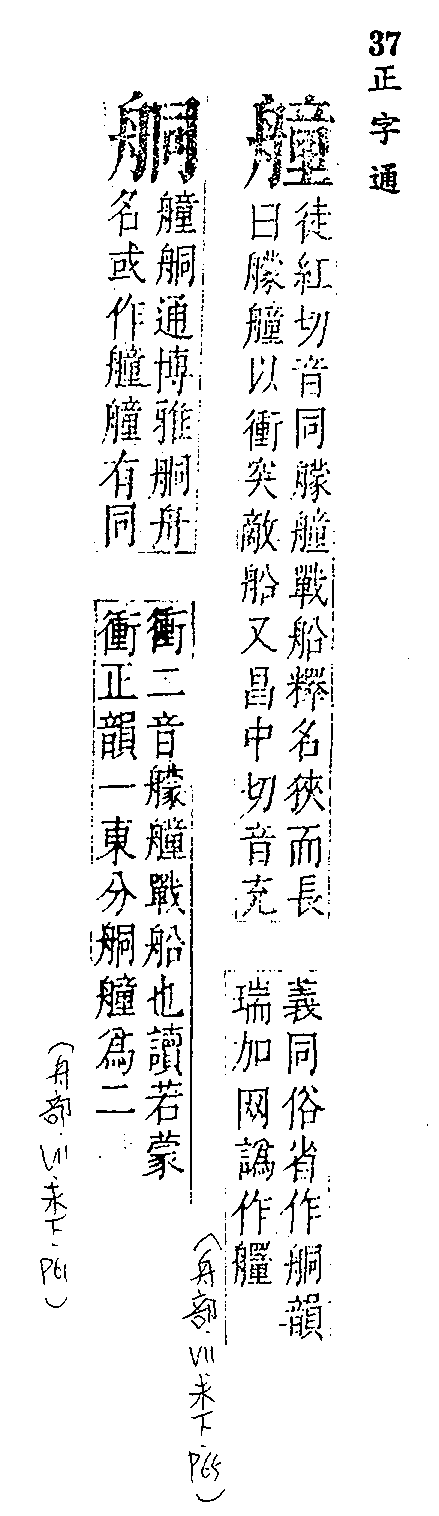 37正字通
艟
徒紅切音同艨艟戰船釋名狹而長
曰艨艟以衝突敵船又昌中切音充
義同俗省作舸韻
瑞加网譌作艟
舸
艟舸通博雅舸舟
名或作艟艟有同
衝二音艨艟戰船也讀若蒙
衝正韻一東分舸艟爲二
(舟部.VII.未下.P65)
(舟部.VII.未下.P61)